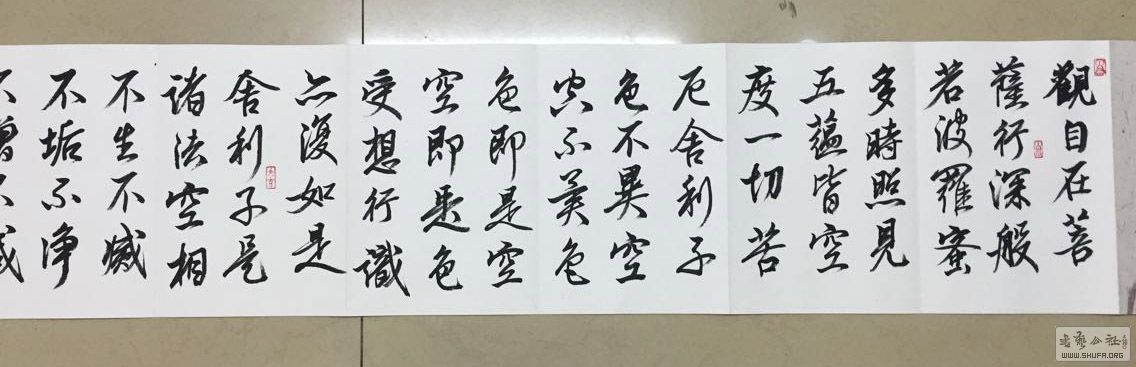 觀自在菩
薩行深般
若波羅蜜
多時照見
五蘊皆空
度一切苦
厄舍利子
色不異空
空不異色
色即是空
空即是色
受想行識
亦復如是
舍利子是
諸法空相
不生不滅
不垢不淨
不增不減
WWW.SHUFA.ORG